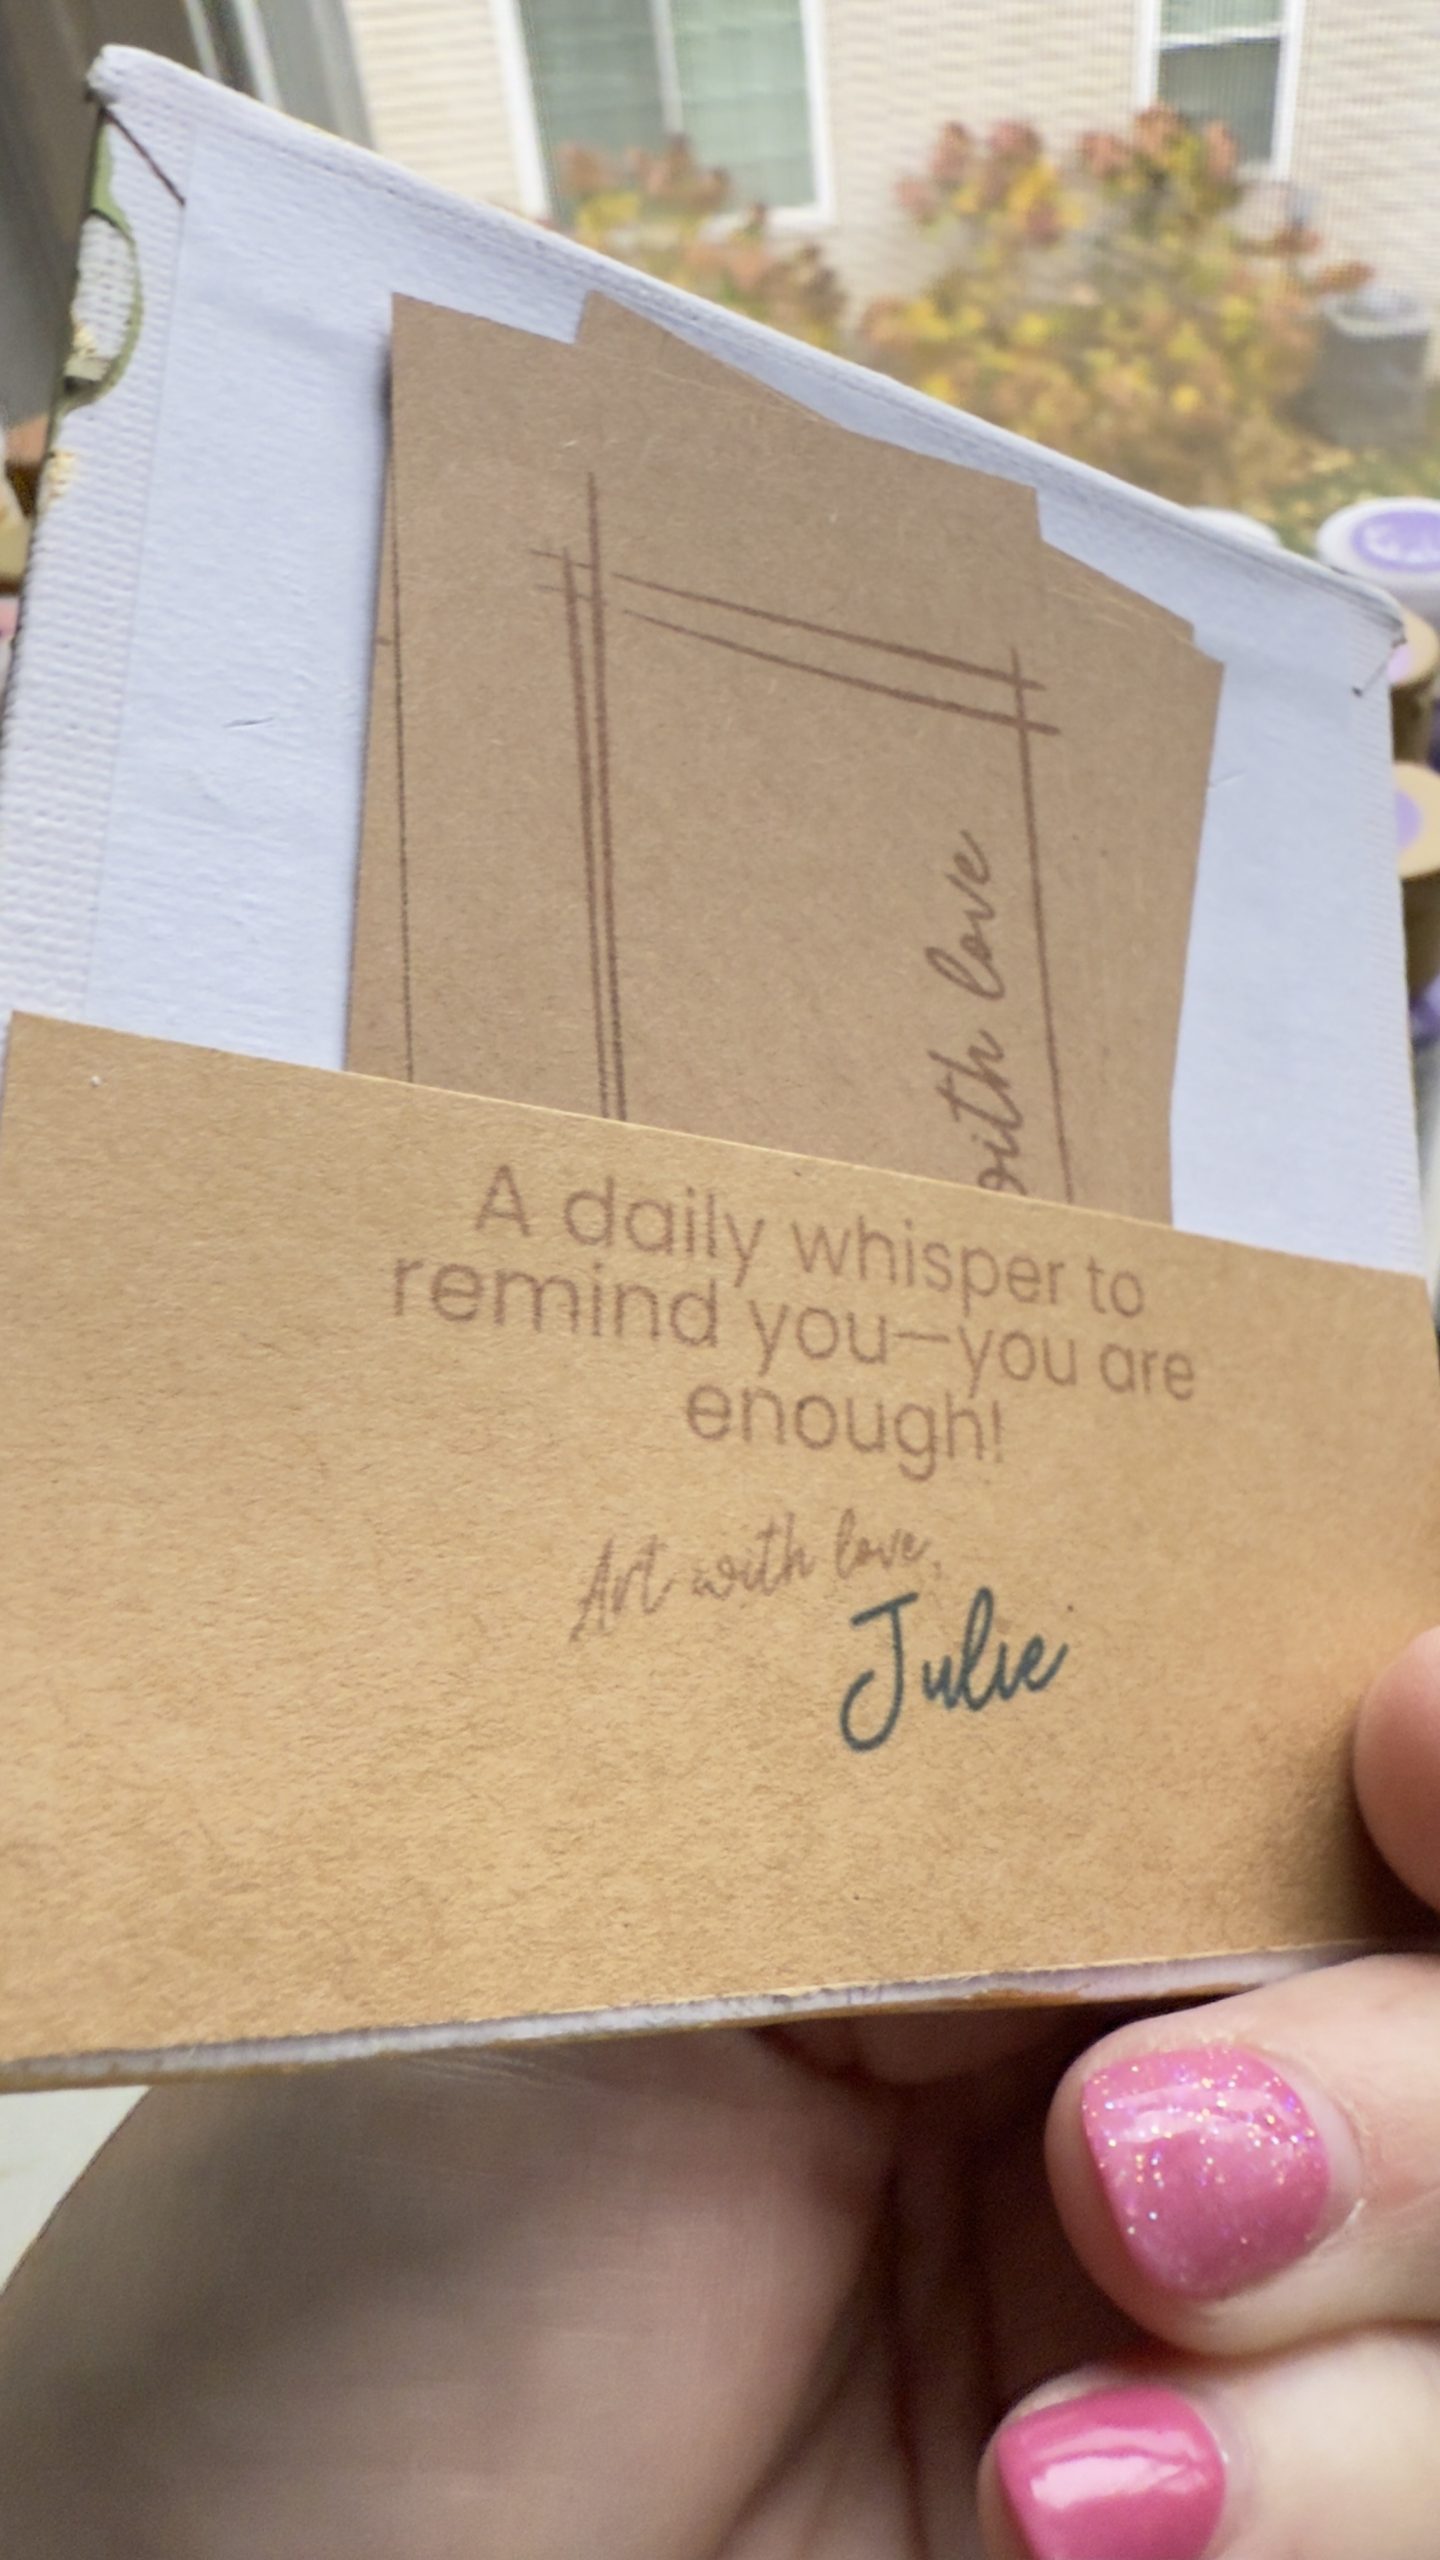 with love
A daily whisper to
remind you—you are
enough!
Art with love,
Julie